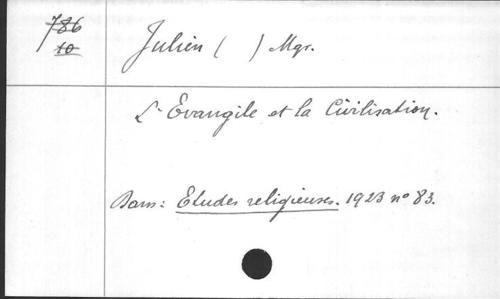 786
10
Julien ( ) Mgr.
L'Evangile et la Civilisation.
Dans: Etudes religieuses. 1923 nº 83.